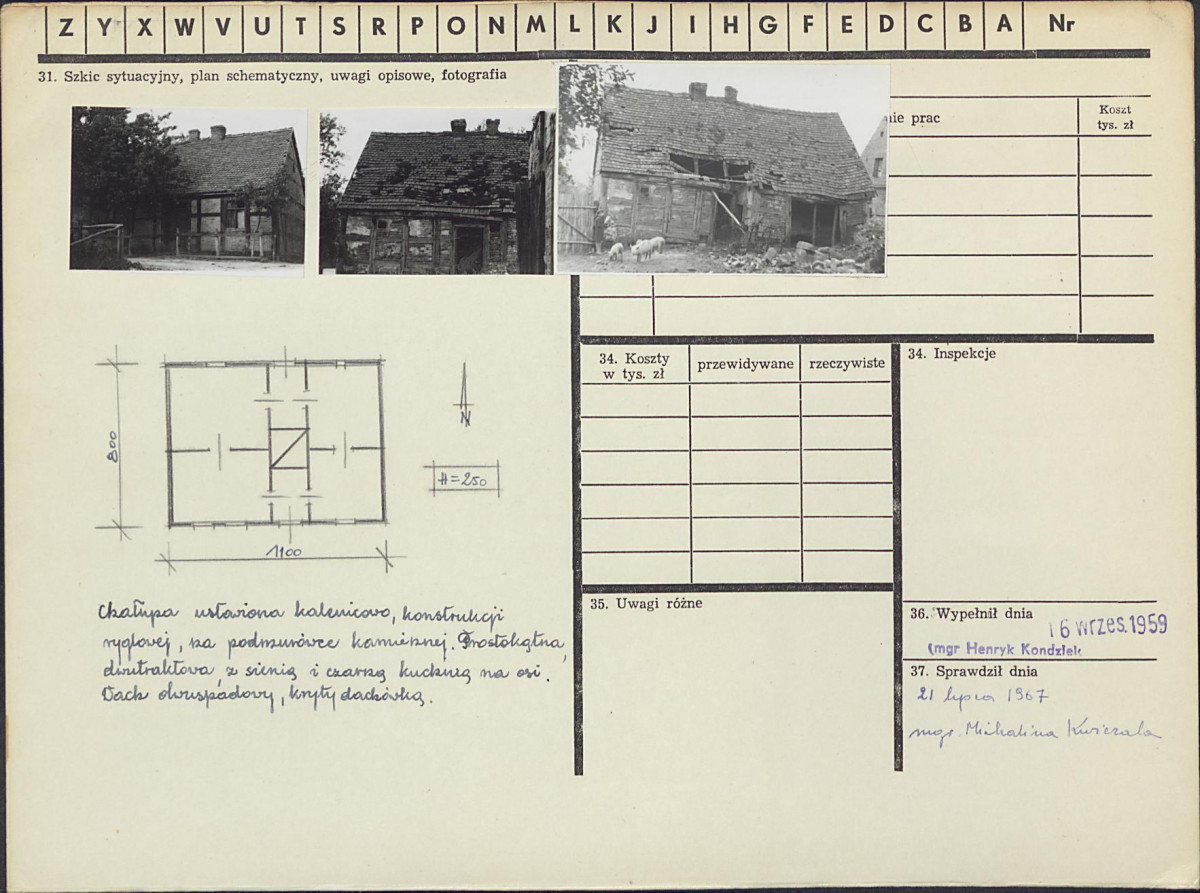 Z Y X W V U T S R P O N M L K J I H G F E D C B A Nr
31. Szkic sytuacyjny, plan schematyczny, uwagi opisowe, fotografia
nie prac
Koszt
tys. zł
800
N
H=250
1100
Chałupa ustawiona kalenicowo, konstrukcji
ryglowej, na podmurówce kamiennej. Prostokątna,
dwutraktowa, z sienią i czarną kuchnią na osi.
Dach dwuspadowy, kryty dachówką.
34. Koszty
w tys. zł
przewidywane
rzeczywiste
34. Inspekcje
35. Uwagi różne
36. Wypełnił dnia
16 wrzes. 1959
(mgr Henryk Kondziek
37. Sprawdził dnia
21 lipca 1967
mgr. Michalina Kwiczala